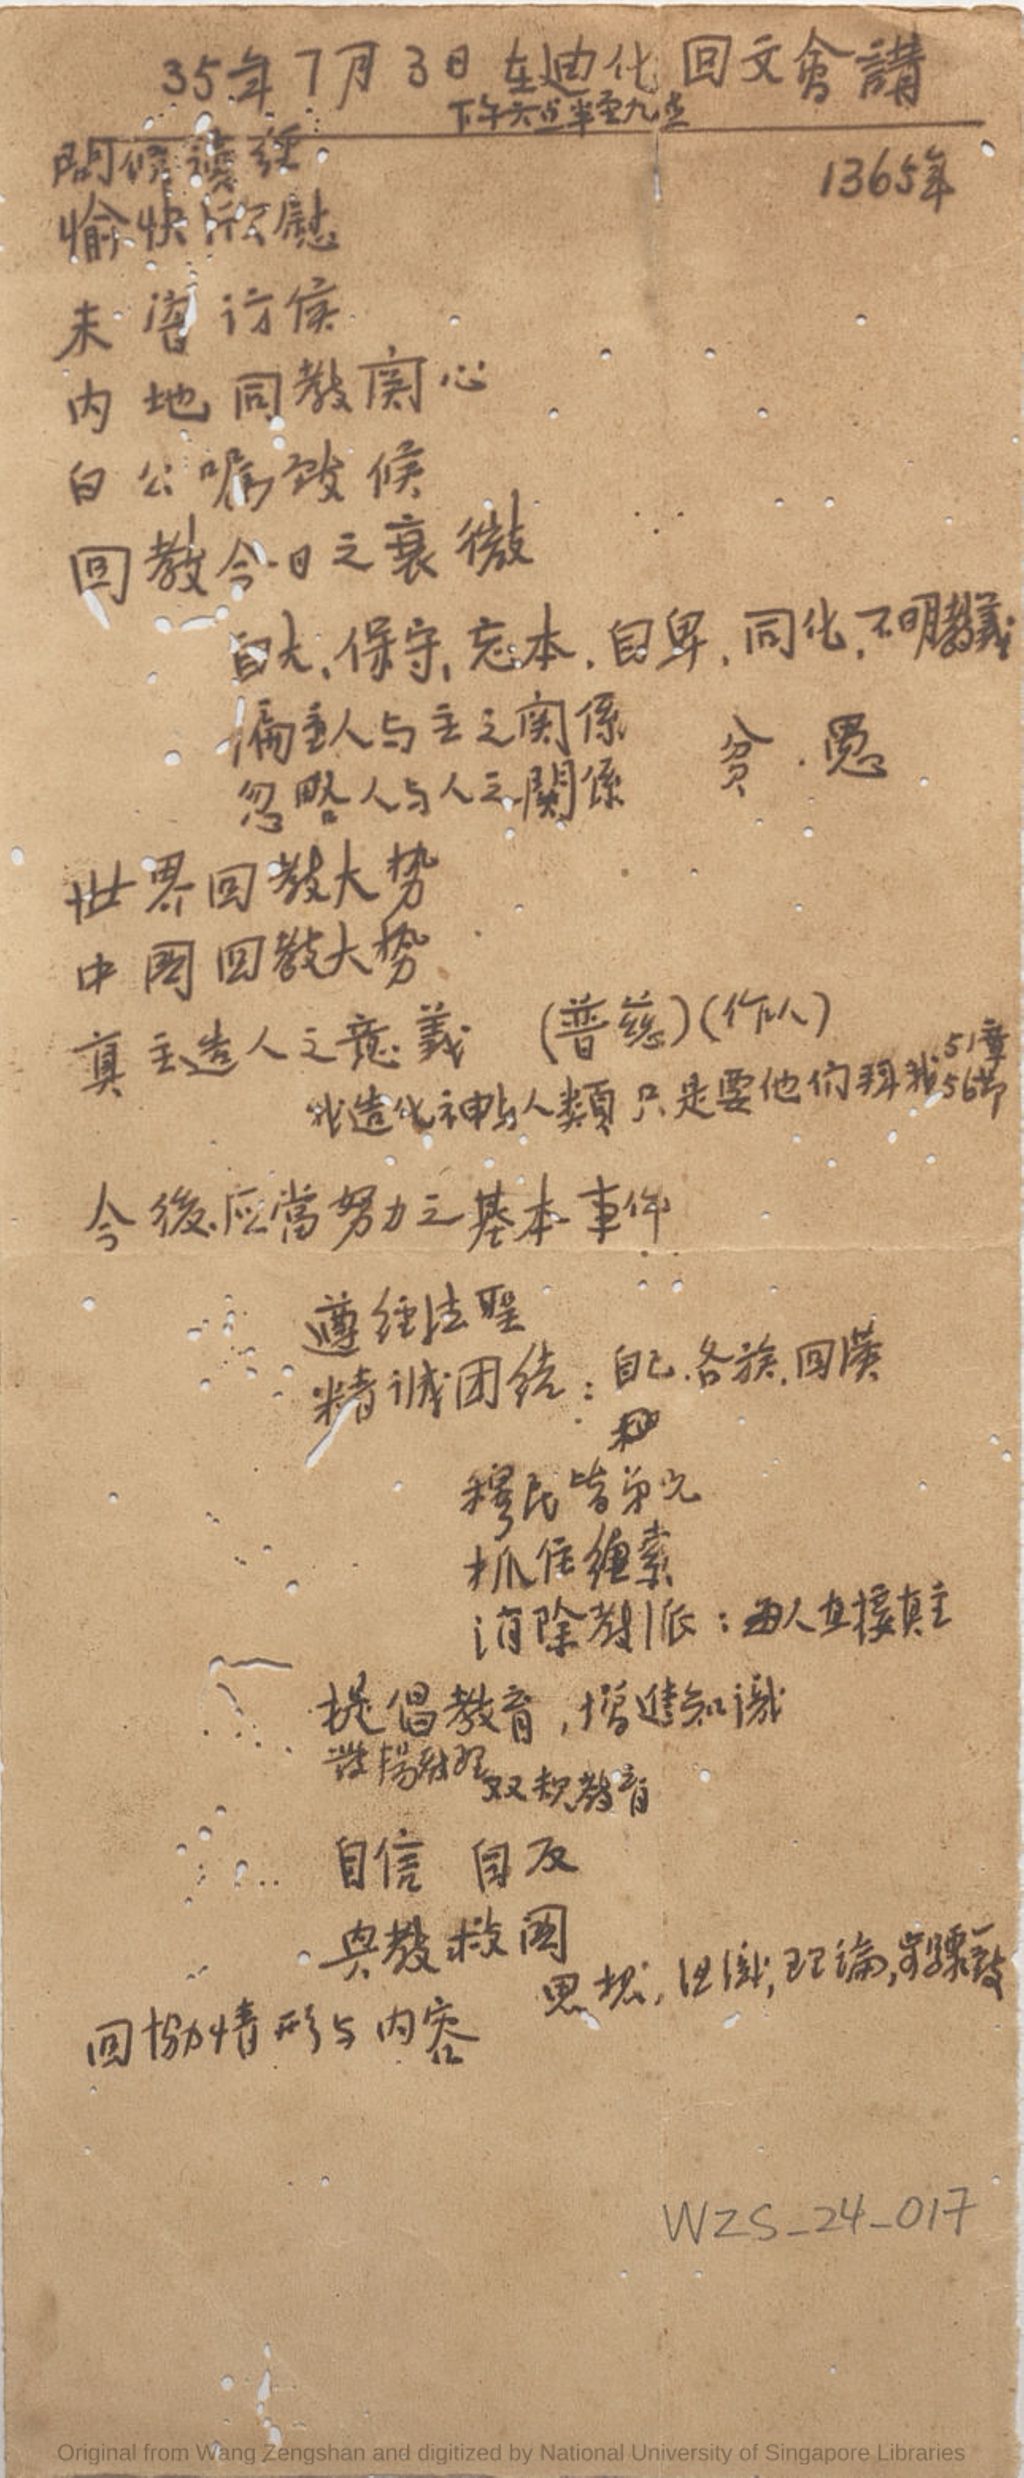 35年7月3日在迪化回文會講
下午六点半至九点
1365年
問候讀經
愉快欣慰
未當访候
内地同教関心
白公嘱致候
回教今日之衰微
自大,保守,忘本,自卑,同化,不明教義
偏重人与主之関係
忽略人与人之関係
貧.愚
世界回教大势
中國回教大势
真主造人之意義 (普慈)(作人)
我造化神与人類只是要他们拜我 51章56节
今後应當努力之基本事件
遵經法聖
精诚团结:自己.各族.回漢
穆民皆弟兄
抓住绳索
消除教派:人直接真主
提倡教育,增進知識
双规教育
自信 自反
興教救國
思想,组織,理論,步驟一致
回協情形与内容
WZS_24_017
Original from Wang Zengshan and digitized by National University of Singapore Libraries